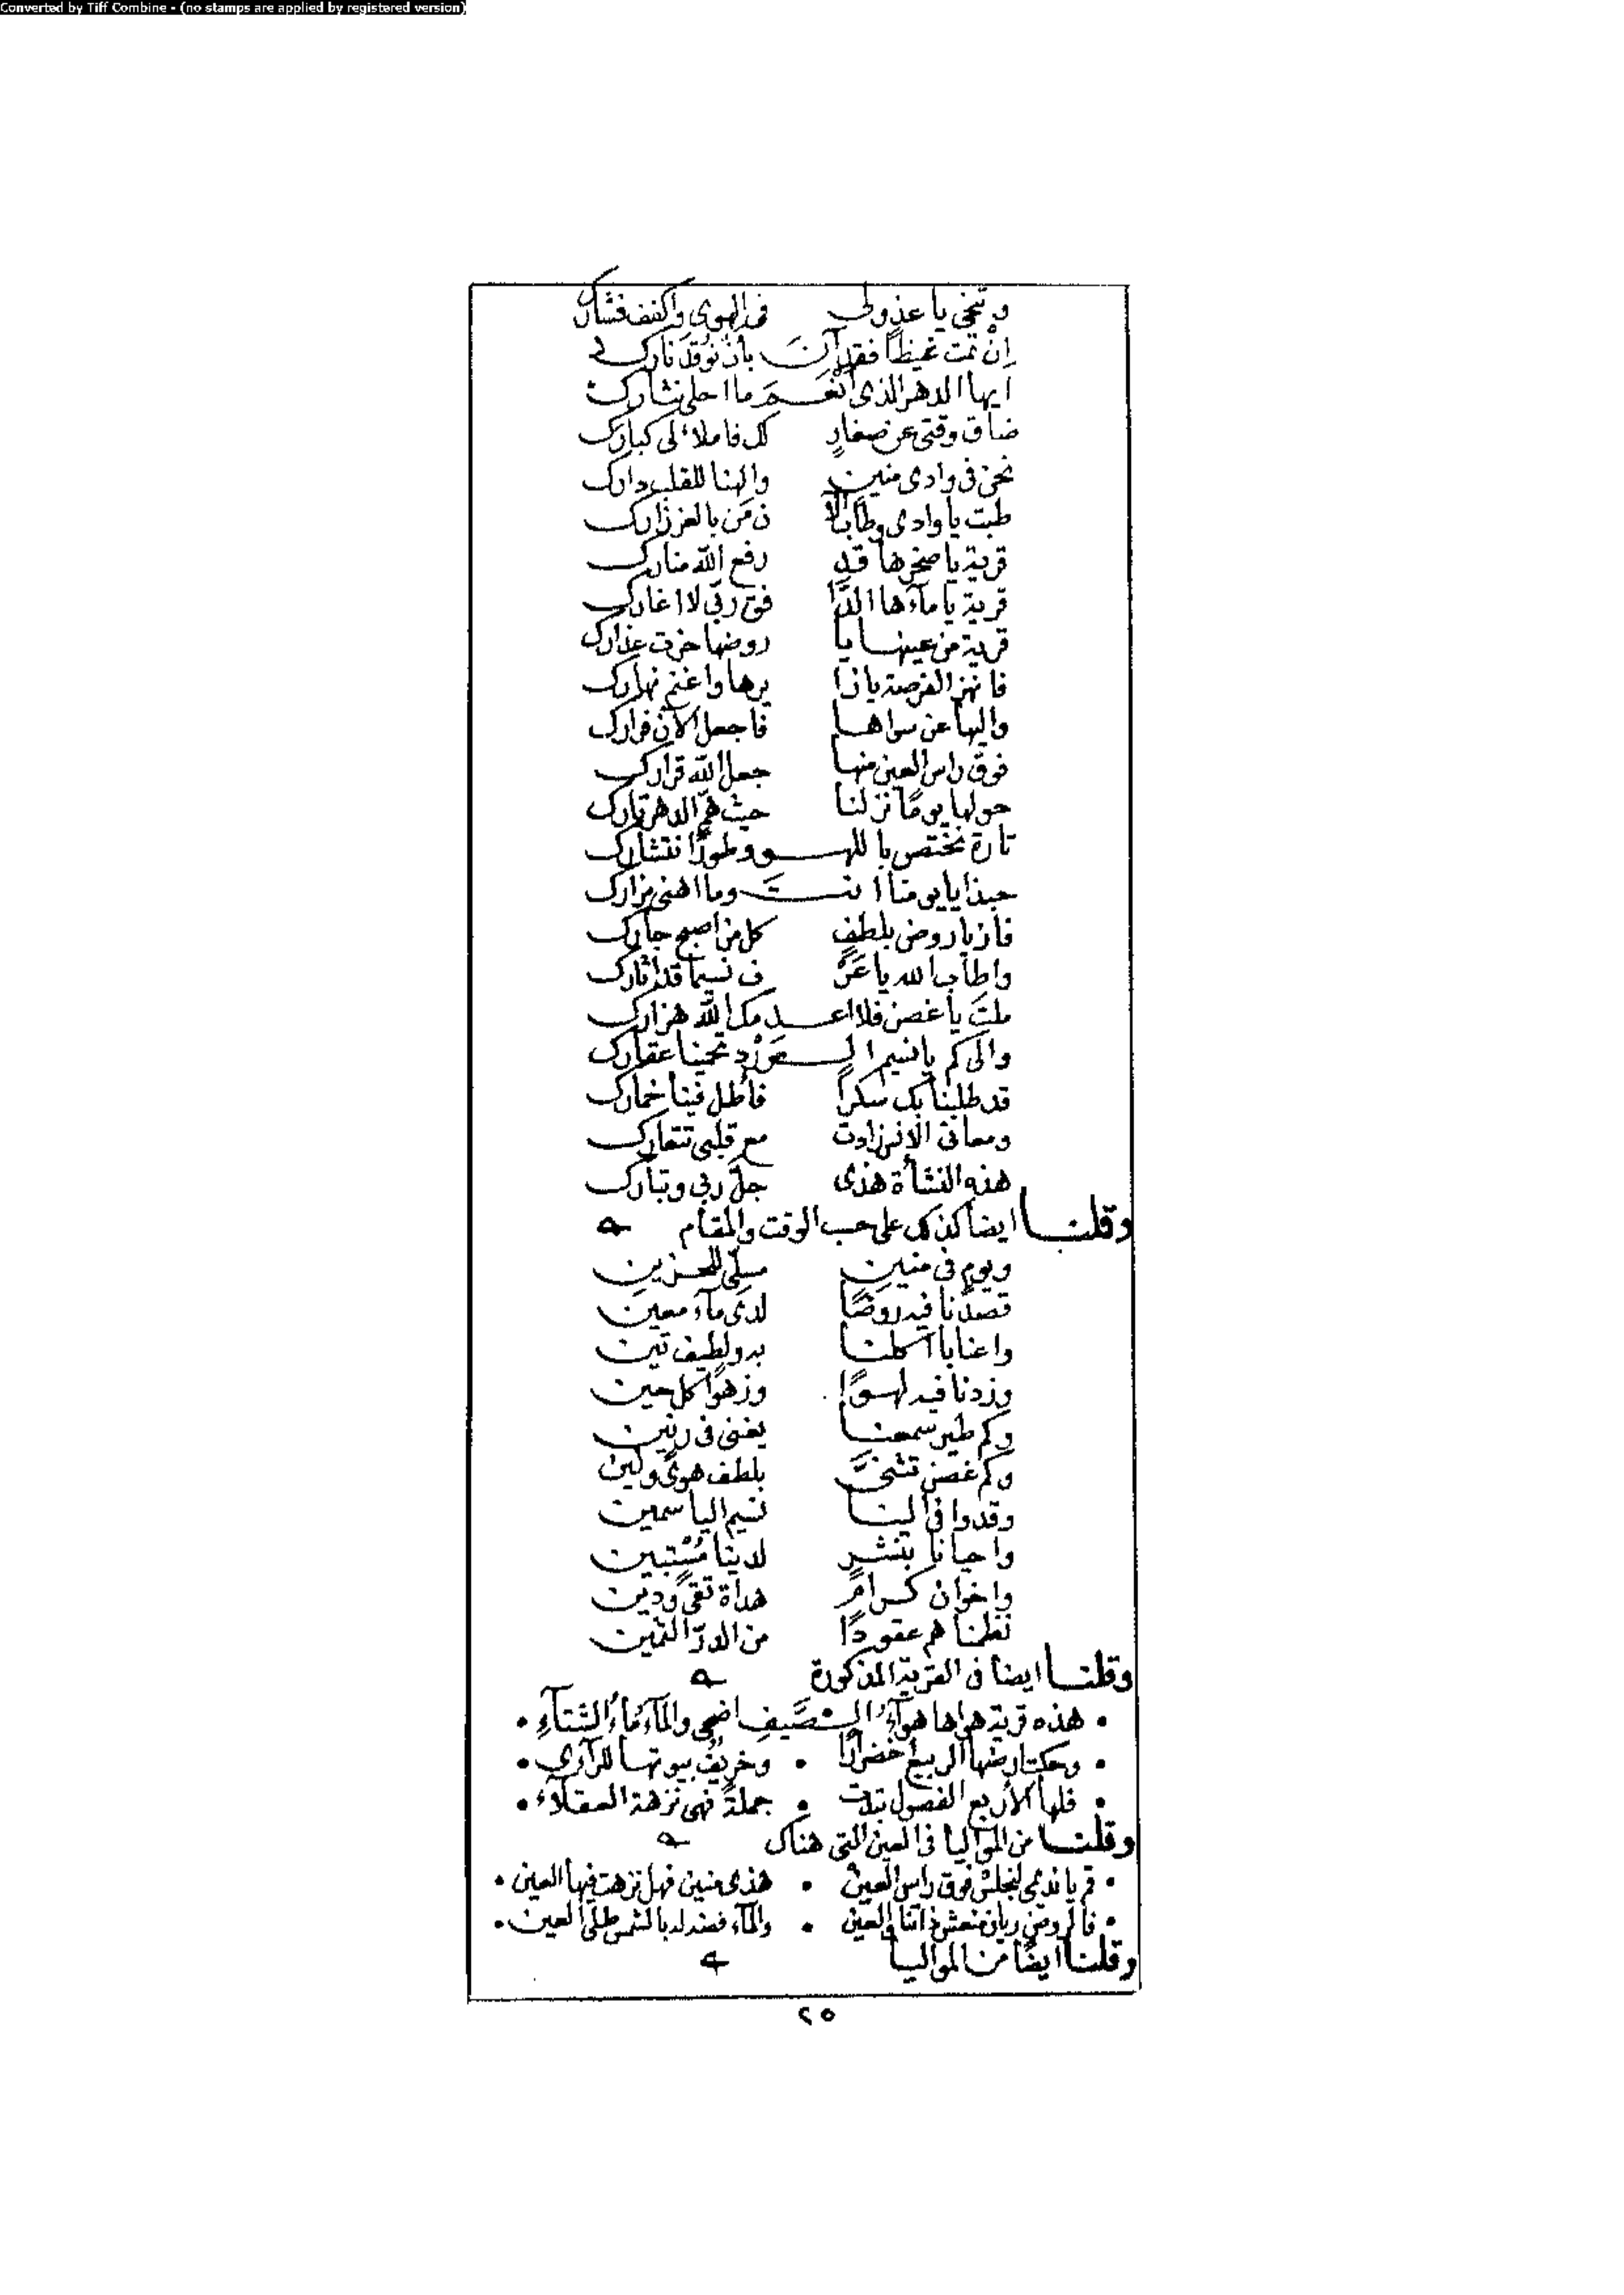 Converted by Tiff Combine - (no stamps are applied by registered version)
وتنحى يا عذولى فى الهوى واكفف فشارك
إن تمت غيظا فقد آنَ بأن توقد نارك
ايها الدهر الذى أنْعَمَ ما احلى نثارك
ضاق وقتى عن صغارٍ كل فاملاء لى كبارك
نحن فى وادى منين والهنا للقلب دارك
طبت يا وادى وطاب الآ ن من بالعز زارك
قرية يا صخرها قد رفع الله منارك
قرية يا ماءها الدّا فق ربى لا اغارك
قرية من عينها يا روضها حزت عذارك
فانهز الفرصة يا زا يرها واغنم نهارك
واليها عن سواها فاجعل الآن فرارك
فوق راس العين منها جعل الله قرارك
حولها يومًا نزلنا حيث همّ الدهر تارك
تارة نختص باللهو وطورًا نتشارك
حبذا يا يومنا انتَ وما اهنى مزارك
فاز يا روض بلطفٍ كل من اصبح جارك
واطاب الله يا عَرْ ف نسيما قد اثارك
ملتَ يا غصن فلا اعدمك الله هزارك
والى كم يا نسيم الـعَوْد تحيينا عقارك
قد طلبنا بك سكرًا فأطل فينا خمارك
ومعانى الانس زادت مع قلبى تتعارك
هذه النشأة هذى جلّ ربى وتبارك
وقلنا ايضا كذلك على حسب الوقت والمقام
ويوم فى منين مسلّى للحزين
قصدنا فيه روضًا لدى ماء معين
واعنابا اكلنا به ولطيف تين
وزدنا فيه لهوًا وزهوًا كل حين
وكم طير سمعنا يغنى فى رنين
وكم غصن تثنّى بلطف هوًى ولين
وقد وافى الينا نسيم الياسمين
واحيانا بنشرٍ لدينا مستبين
واخوان كرامٍ هداة تقى ودين
نظمناهم عقودًا من الدرّ الثمين
وقلنا ايضا فى القرية المذكورة
• هذه قرية هواها هواء الـصَّيفِ اضحى والماء ماء الشتاءِ •
• وحكت ارضها الربيع اخضرارًا • وخريف بيوتها للرآءى •
• فلها الأربع الفصول تبدت • جملةً فهى نزهة العقلاء •
وقلنا من المواليا فى العين التى هناك
• قم يا نديمى لنجلس فوق راس العين • هذى منين فهل نزهت فيها العين •
• فالروض ريان منعش ذاتنا والعين • والماء فضه له بالشمس طلى العين •
وقلنا ايضًا من المواليا
٢٥